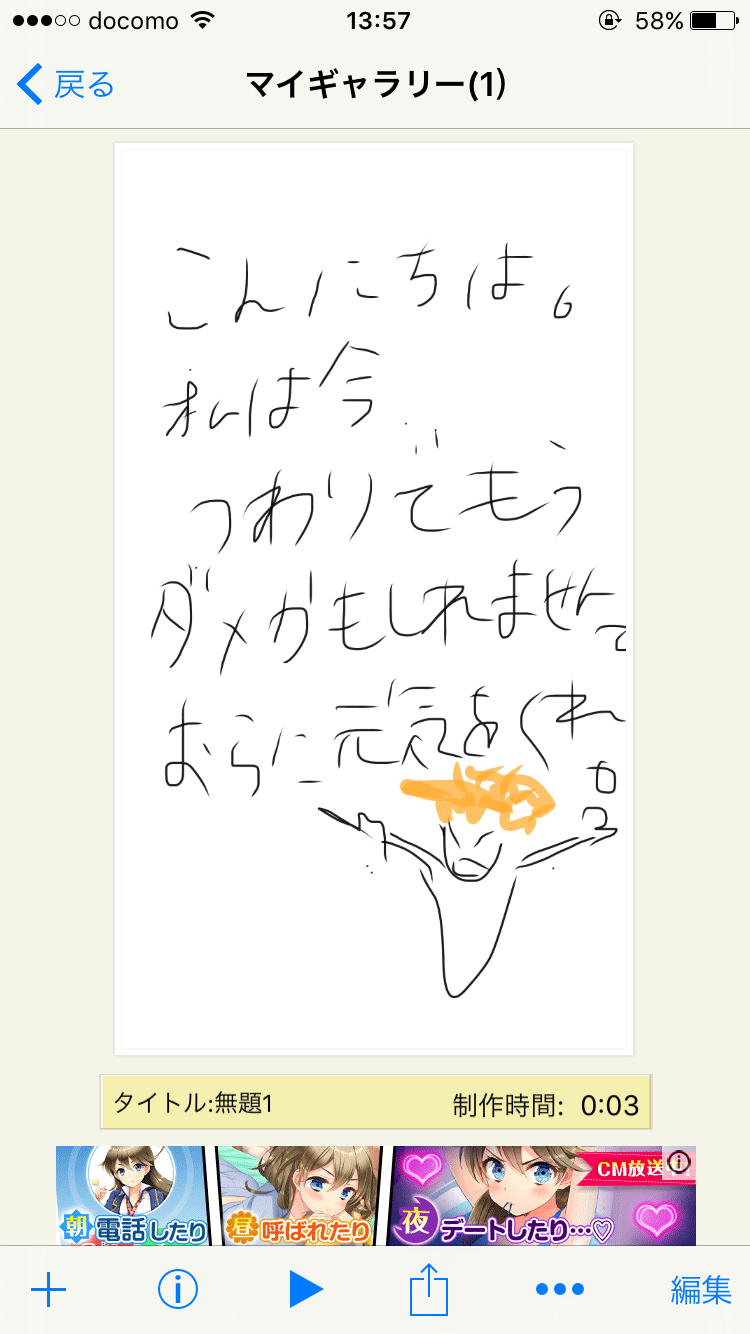 docomo 13:57 58%
戻る マイギャラリー(1)
こんにちは。
私は今
つわりでもう
ダメかもしれませんて
おらに元気をくれ
タイトル:無題1 制作時間: 0:03
朝 電話したり 昼 呼ばれたり 夜 デートしたり…♡ CM放送
編集